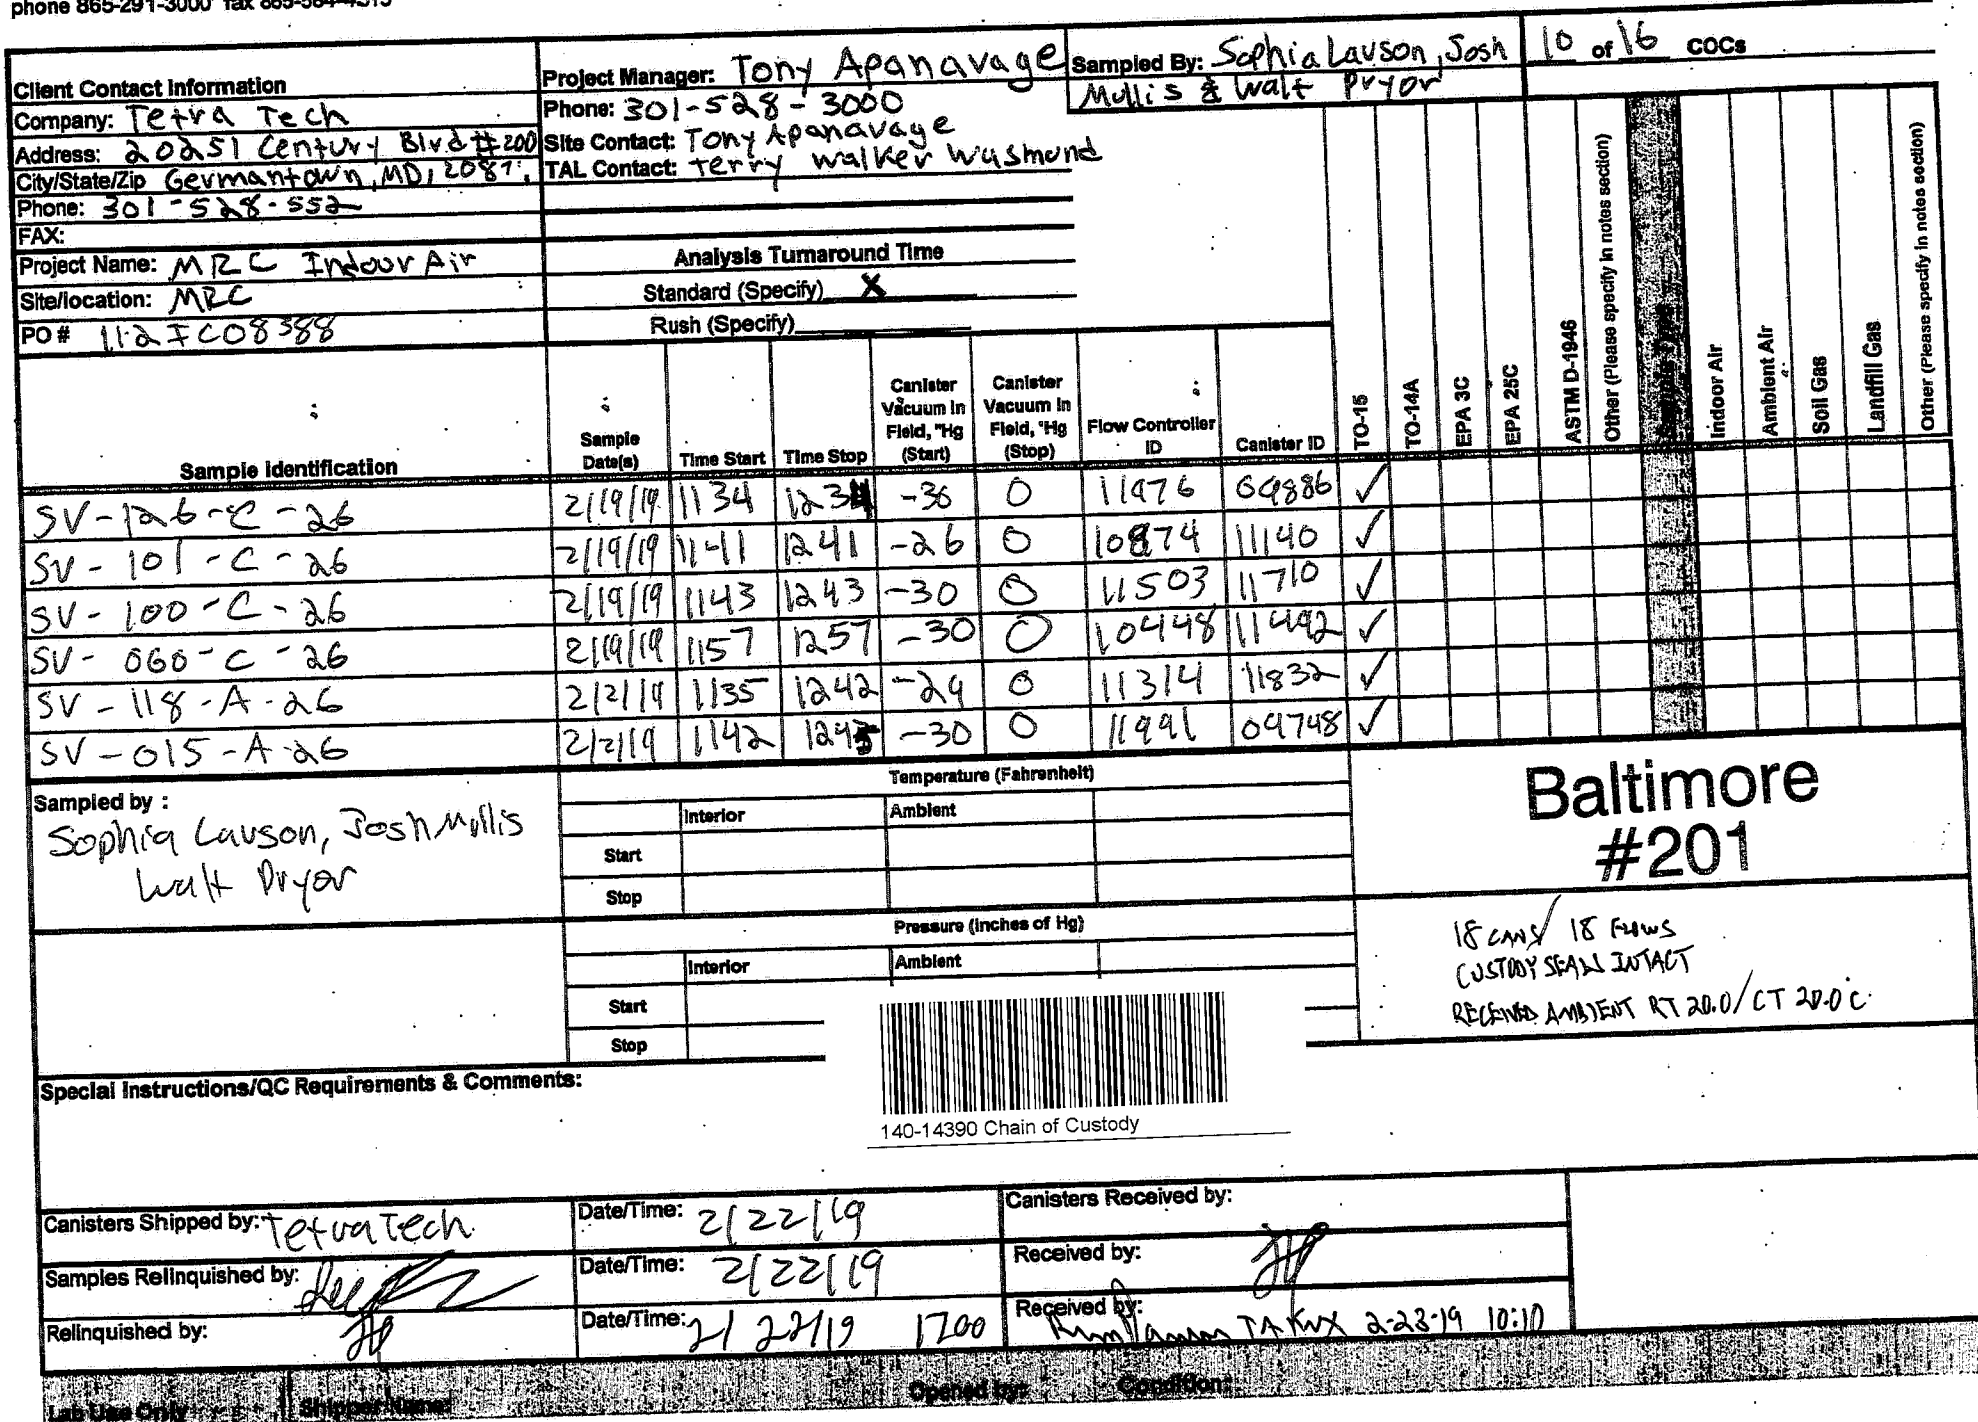 phone 865-291-3000 fax 865-584-4315
Client Contact Information
Company: Tetra Tech
Address: 20251 Century Blvd #200
City/State/Zip Germantown, MD,
Phone: 301-528-552
FAX:
Project Name: MRC Indoor Air
Site/location: MRC
PO # 112IC08388
Project Manager: Tony Apanavage
Phone: 301-528-3000
Site Contact: Tony Apanavage
TAL Contact: Terry Walker Wasmund
Analysis Turnaround Time
Standard (Specify) X
Rush (Specify)
Sampled By: Sophia Lawson, Josh
Mullis & Walt Pryor
10 of 16 COCs
Sample Identification Sample Date(s) Time Start Time Stop Canister Vacuum in Field, "Hg (Start) Canister Vacuum in Field, "Hg (Stop) Flow Controller ID Canister ID TO-15 TO-14A EPA 3C EPA 25C ASTM D-1946 Other (Please specify in notes section) Indoor Air Ambient Air Soil Gas Landfill Gas Other (Please specify in notes section)
SV-126-C-26 2/19/19 1134 1234 -30 0 11976 09886 ✓
SV-101-C-26 2/19/19 1141 1241 -26 0 10874 11140 ✓
SV-100-C-26 2/19/19 1143 1243 -30 0 11503 11710 ✓
SV-060-C-26 2/19/19 1157 1257 -30 0 10448 11492 ✓
SV-118-A-26 2/21/19 1135 1242 -29 0 11314 11832 ✓
SV-015-A-26 2/21/19 1142 1245 -30 0 11991 09748 ✓
Sampled by :
Sophia Lawson, Josh Mullis
Walt Pryor
Temperature (Fahrenheit)
Interior Ambient
Start
Stop
Pressure (inches of Hg)
Interior Ambient
Start
Stop
Baltimore
#201
18 CANS/ 18 FLOWS
CUSTODY SEALS INTACT
RECEIVED AMBIENT RT 20.0/CT 20.0°C
Special Instructions/QC Requirements & Comments:
140-14390 Chain of Custody
Canisters Shipped by: Tetra Tech Date/Time: 2/22/19 Canisters Received by:
Samples Relinquished by: Date/Time: 2/22/19 Received by:
Relinquished by: Date/Time: 2/22/19 1700 Received by: TA KNX 2-23-19 10:10
Lab Use Only Shipper Name: Opened by: Condition: